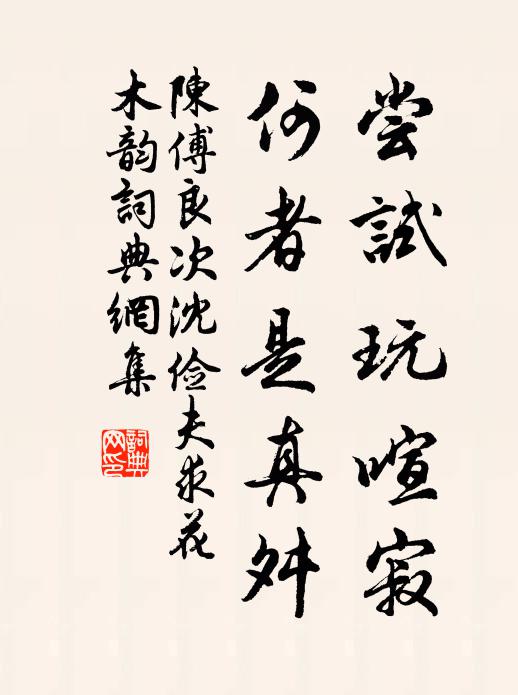 尝試玩喧寂
何者是真舛
陳傅良次沈俭夫求花
木韵詞典網集
詞典网印